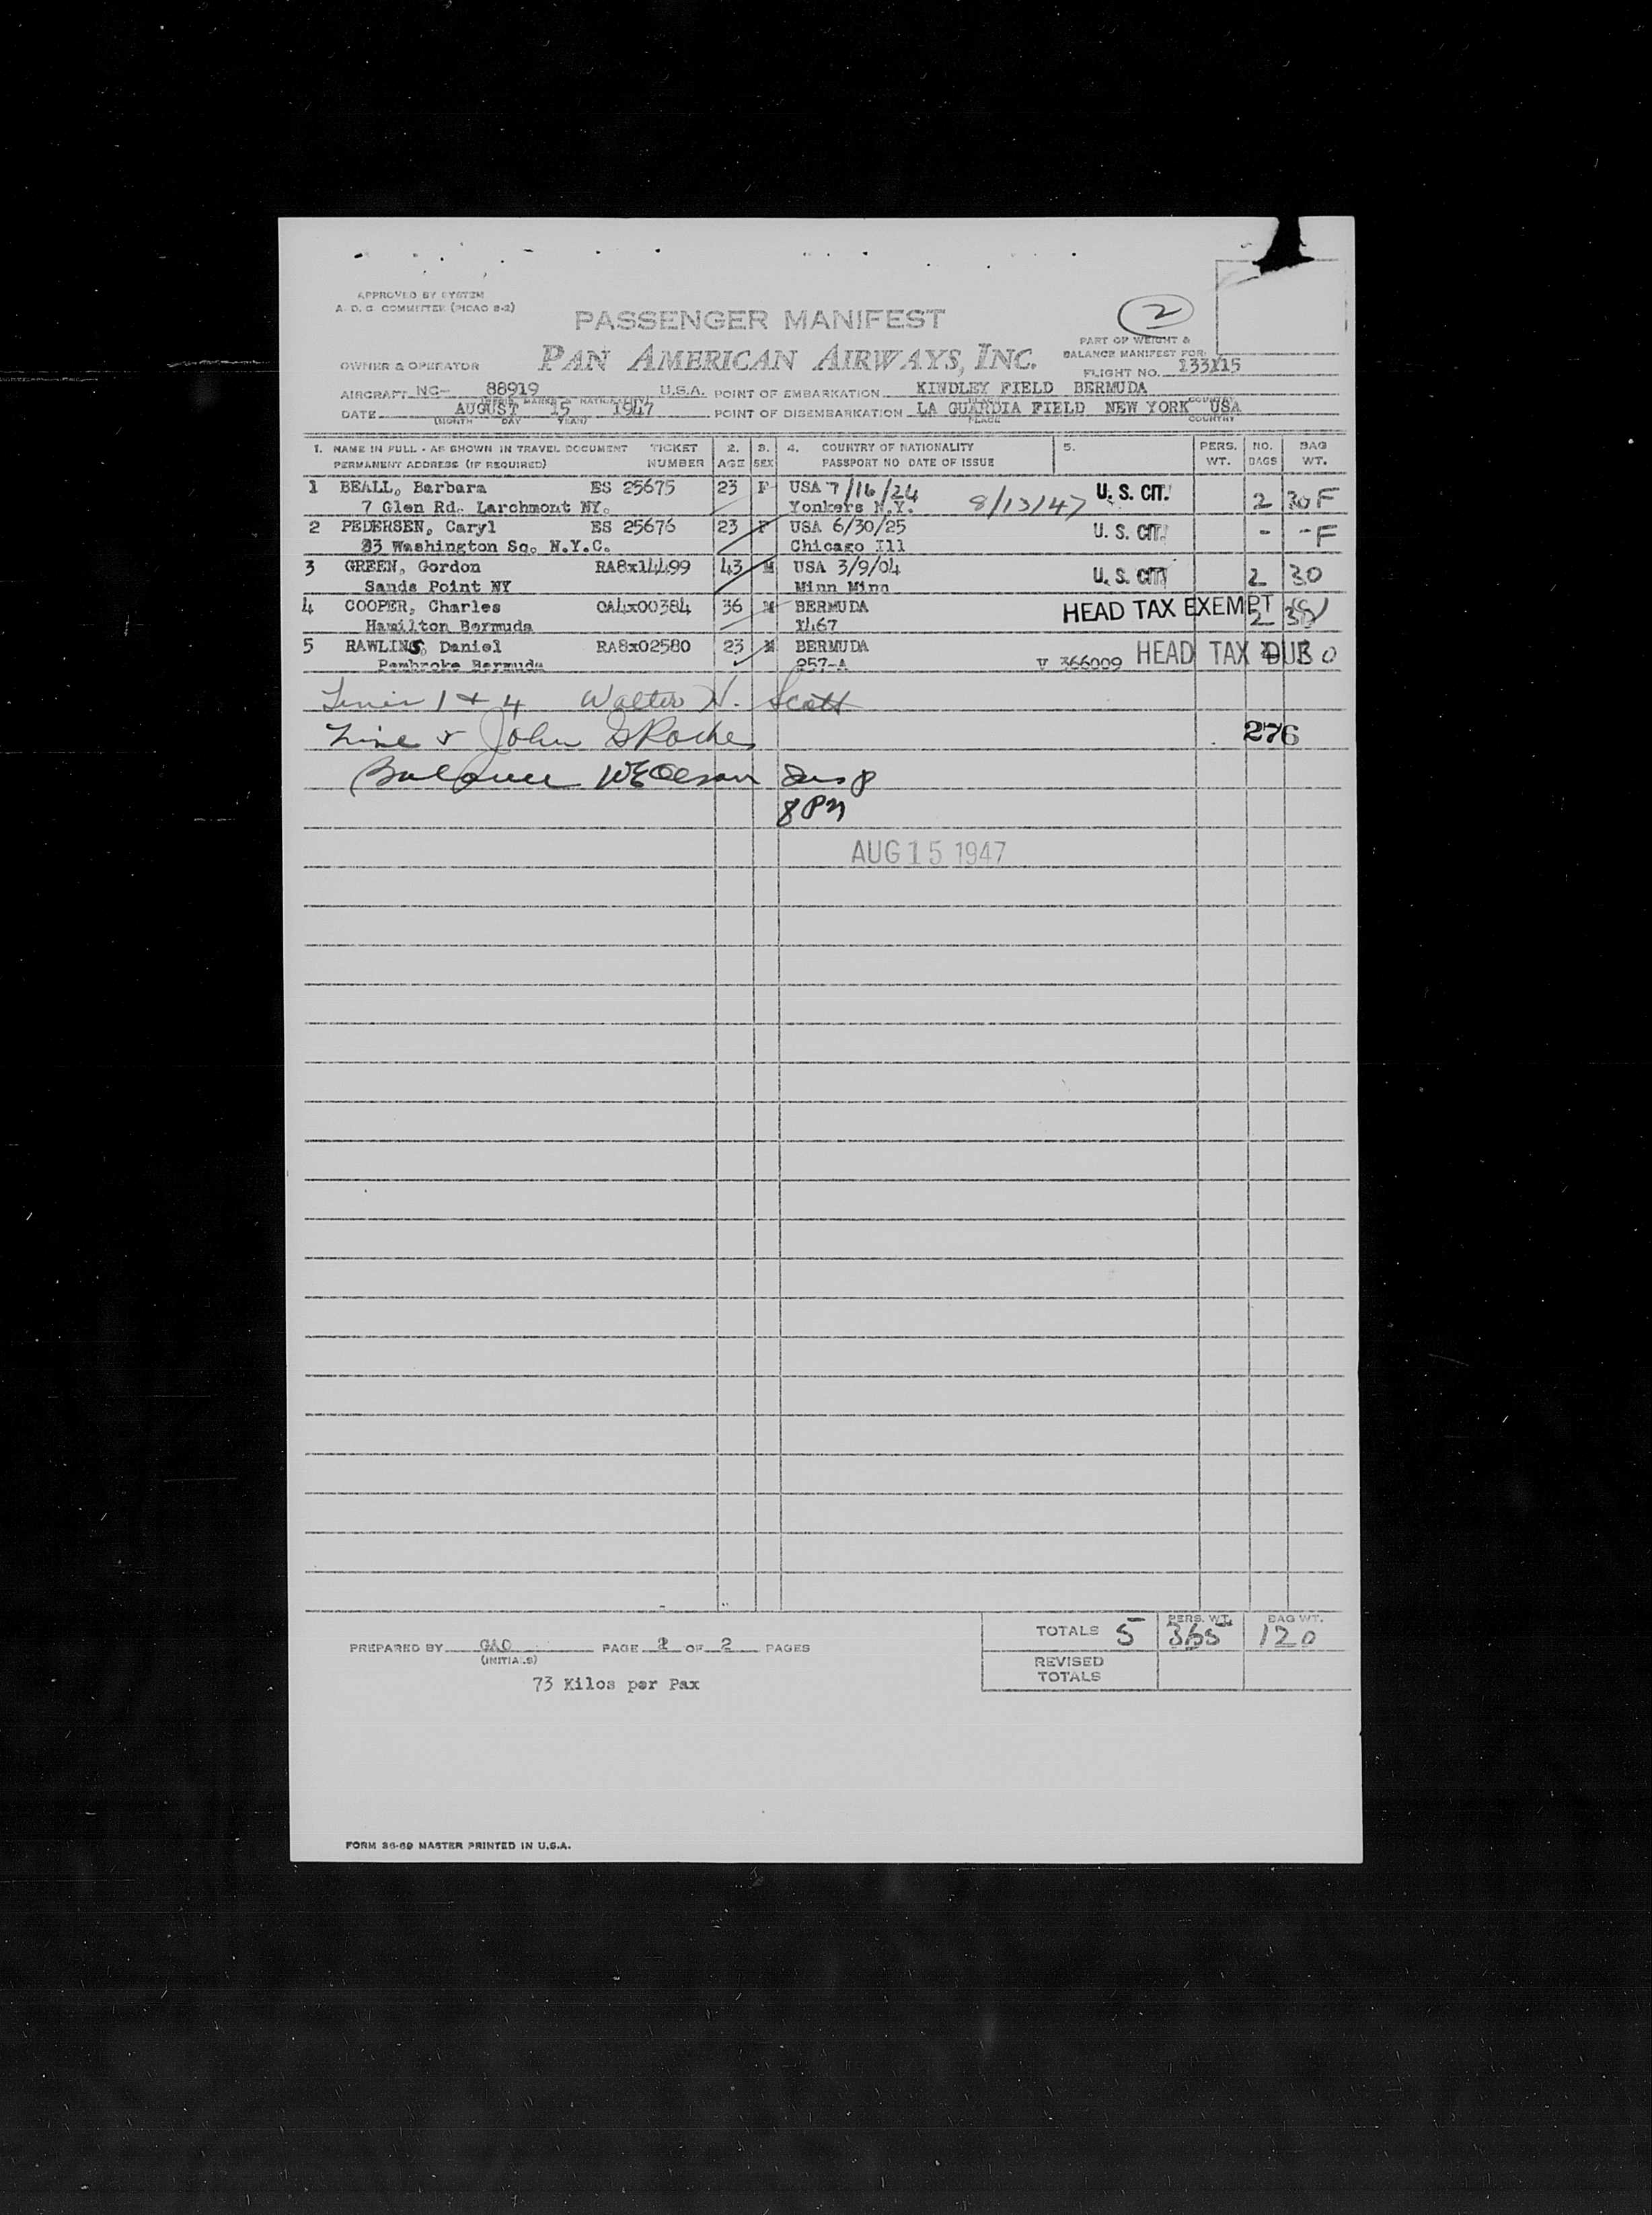 APPROVED BY SYSTEM
A. D. C. COMMITTEE (PICAO 8-2)
PASSENGER MANIFEST
2
PART OF WEIGHT &
BALANCE MANIFEST FOR:
OWNER & OPERATOR PAN AMERICAN AIRWAYS, INC.
FLIGHT NO. 133X15
AIRCRAFT NC- 88919 U.S.A. POINT OF EMBARKATION KINDLEY FIELD BERMUDA
DATE AUGUST 15 1947 POINT OF DISEMBARKATION LA GUARDIA FIELD NEW YORK USA
(MONTH DAY YEAR) PLACE COUNTRY
1. NAME IN FULL - AS SHOWN IN TRAVEL DOCUMENT TICKET 2. 3. 4. COUNTRY OF NATIONALITY 5. PERS. NO. BAG
PERMANENT ADDRESS (IF REQUIRED) NUMBER AGE SEX PASSPORT NO DATE OF ISSUE WT. BAGS WT.
1 BEALL, Barbara ES 25675 23 F USA 7/16/24 8/13/47 U. S. CIT. 2 30 F
7 Glen Rd. Larchmont NY. Yonkers N.Y.
2 PEDERSEN, Caryl ES 25676 23 F USA 6/30/25 U. S. CIT. - - F
33 Washington Sq. N.Y.C. Chicago Ill
3 GREEN, Gordon RA8x14499 43 M USA 3/9/04 U. S. CIT. 2 30
Sands Point NY Minn Minn
4 COOPER, Charles OA4x00384 36 M BERMUDA HEAD TAX EXEMPT
Hamilton Bermuda 1467 2 30
5 RAWLINS, Daniel RA8x02580 23 M BERMUDA HEAD TAX DUE
Pembroke Bermuda 257-A V 366009
Lines 1 & 4 Walter H. Scott
Line 5 John G Roche
276
Balance WE Olson Insp
8 PM
AUG 15 1947
TOTALS 5 PERS. WT. 365 BAG WT. 120
PREPARED BY GAO PAGE 2 OF 2 PAGES
(INITIALS)
REVISED
TOTALS
73 Kilos per Pax
FORM 36-69 MASTER PRINTED IN U.S.A.